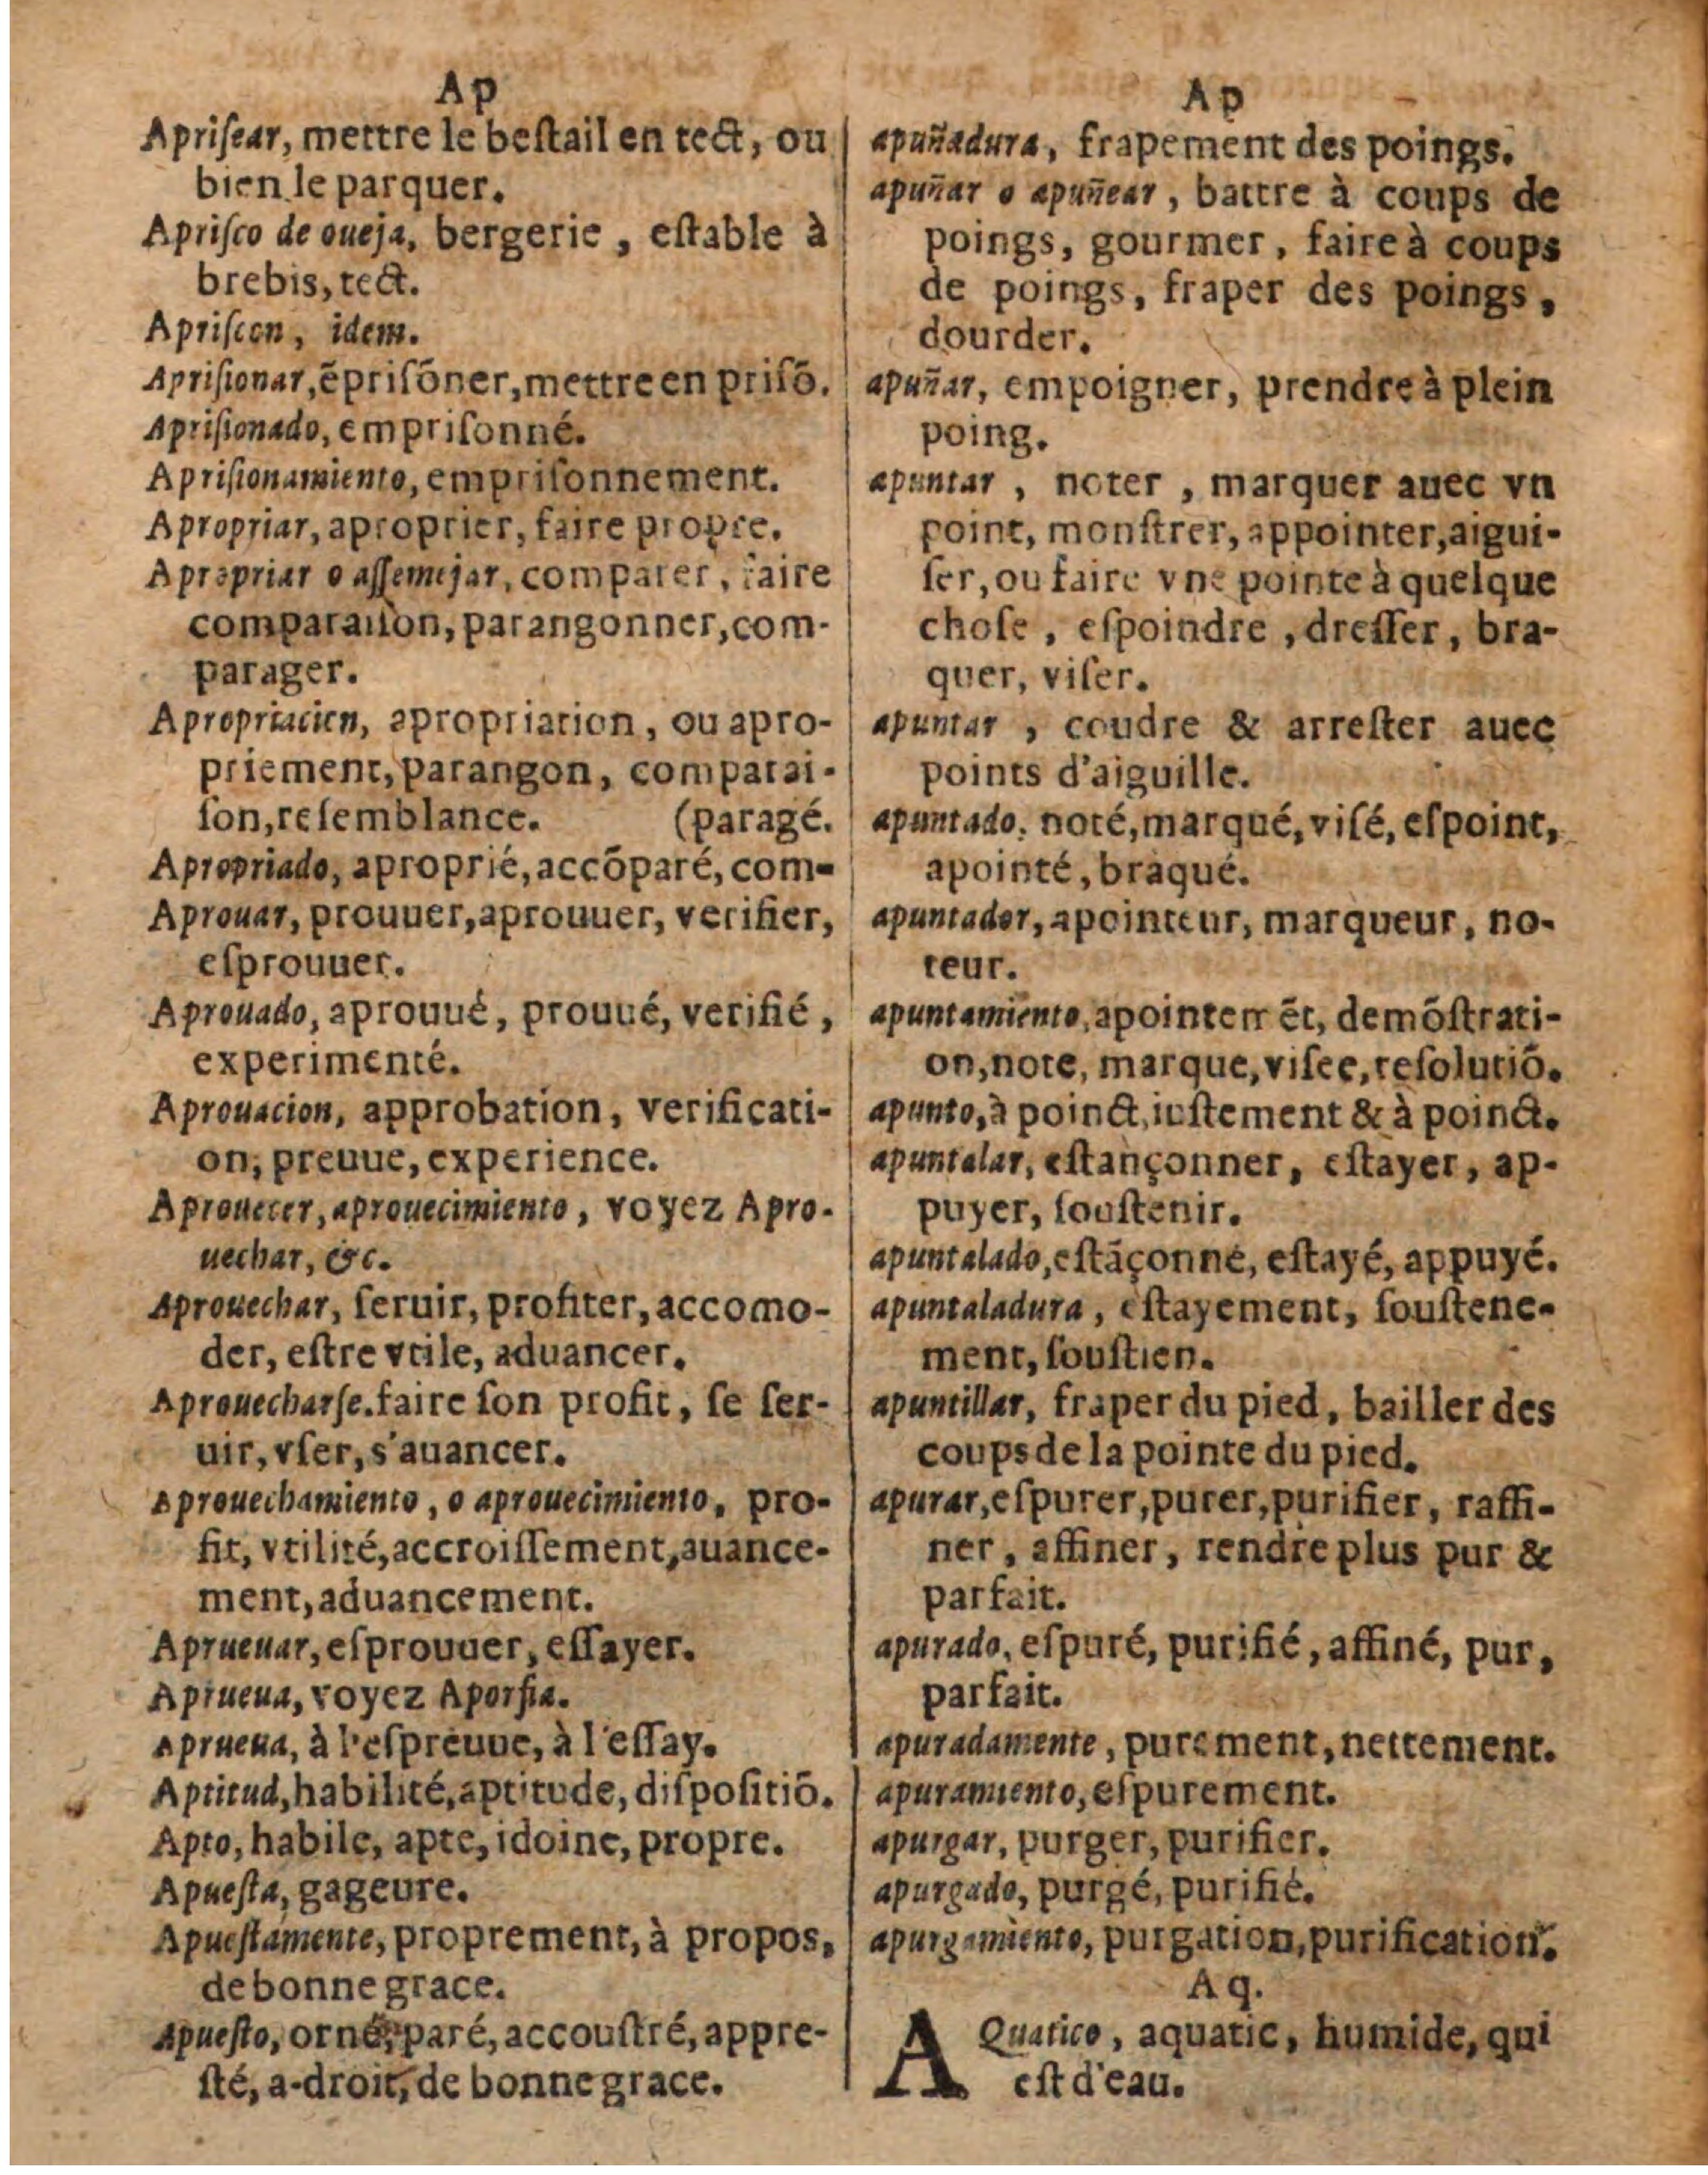 Ap
Apriſear, mettre le beſtail en tect, ou
bien le parquer.
Apriſco de oueja, bergerie, eſtable à
brebis, tect.
Apriſcon, idem.
Apriſionar, ẽpriſõner, mettre en priſõ.
Apriſionado, empriſonné.
Apriſionamiento, empriſonnement.
Apropriar, aproprier, faire propre.
Apropriar o aſſemejar, comparer, faire
comparaiſon, parangonner, com-
parager.
Apropriacion, apropriation, ou apro-
priement, parangon, comparai-
ſon, reſemblance. (paragé.
Apropriado, aproprié, accõparé, com-
Aprouar, prouuer, aprouuer, verifier,
eſprouuer.
Aprouado, aprouué, prouué, verifié,
experimenté.
Aprouacion, approbation, verificati-
on, preuue, experience.
Aprouecer, aprouecimiento, voyez Apro-
uechar, &c.
Aprouechar, ſeruir, profiter, accomo-
der, eſtre vtile, aduancer.
Aprouecharſe. faire ſon profit, ſe ſer-
uir, vſer, s'auancer.
Aprouechamiento, o aprouecimiento, pro-
fit, vtilité, accroiſſement, auance-
ment, aduancement.
Aprueuar, eſprouuer, eſſayer.
Aprueua, voyez Aporfia.
Aprueua, à l'eſpreuue, à l'eſſay.
Aptitud, habilité, aptitude, diſpoſitiõ.
Apto, habile, apte, idoine, propre.
Apueſta, gageure.
Apueſtamente, proprement, à propos,
de bonne grace.
Apueſto, orné, paré, accouſtré, appre-
ſté, a-droit, de bonne grace.
Ap
apuñadura, frapement des poings.
apuñar o apuñear, battre à coups de
poings, gourmer, faire à coups
de poings, fraper des poings,
dourder.
apuñar, empoigner, prendre à plein
poing.
apuntar, noter, marquer auec vn
point, monſtrer, appointer, aigui-
ſer, ou faire vne pointe à quelque
choſe, eſpoindre, dreſſer, bra-
quer, viſer.
apuntar, coudre & arreſter auec
points d'aiguille.
apuntado, noté, marqué, viſé, eſpoint,
apointé, braqué.
apuntador, apointeur, marqueur, no-
teur.
apuntamiento, apointemẽt, demõſtrati-
on, note, marque, viſee, reſolutiõ.
apunto, à poinct, iuſtement & à poinct.
apuntalar, eſtançonner, eſtayer, ap-
puyer, ſouſtenir.
apuntalado, eſtãçonné, eſtayé, appuyé.
apuntaladura, eſtayement, ſouſtene-
ment, ſouſtien.
apuntillar, fraper du pied, bailler des
coups de la pointe du pied.
apurar, eſpurer, purer, purifier, raffi-
ner, affiner, rendre plus pur &
parfait.
apurado, eſpuré, purifié, affiné, pur,
parfait.
apuradamente, purement, nettement.
apuramiento, eſpurement.
apurgar, purger, purifier.
apurgado, purgé, purifié.
apurgamiento, purgation, purification.
Aq.
AQuatico, aquatic, humide, qui
eſt d'eau.